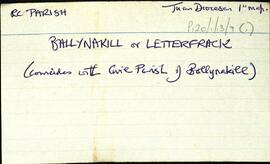 RC PARISH
Tuam Diocesan 1" map.
P120/1/3/9 (i)
BALLYNAKILL or LETTERFRACK
(coincides with Civil Parish of Ballynakill)